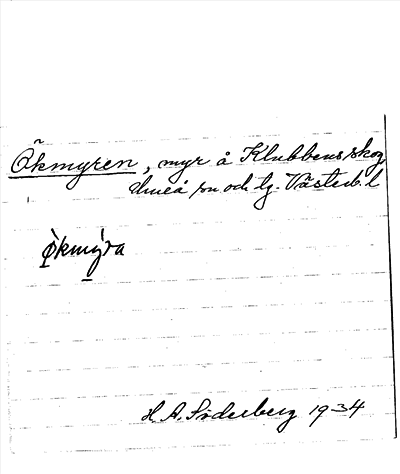 Ökmyren, myr å Klubbens skog
Umeå sn och tg. Västerb. l
Ò̱kmý̱ra
H. A. Söderberg 1934